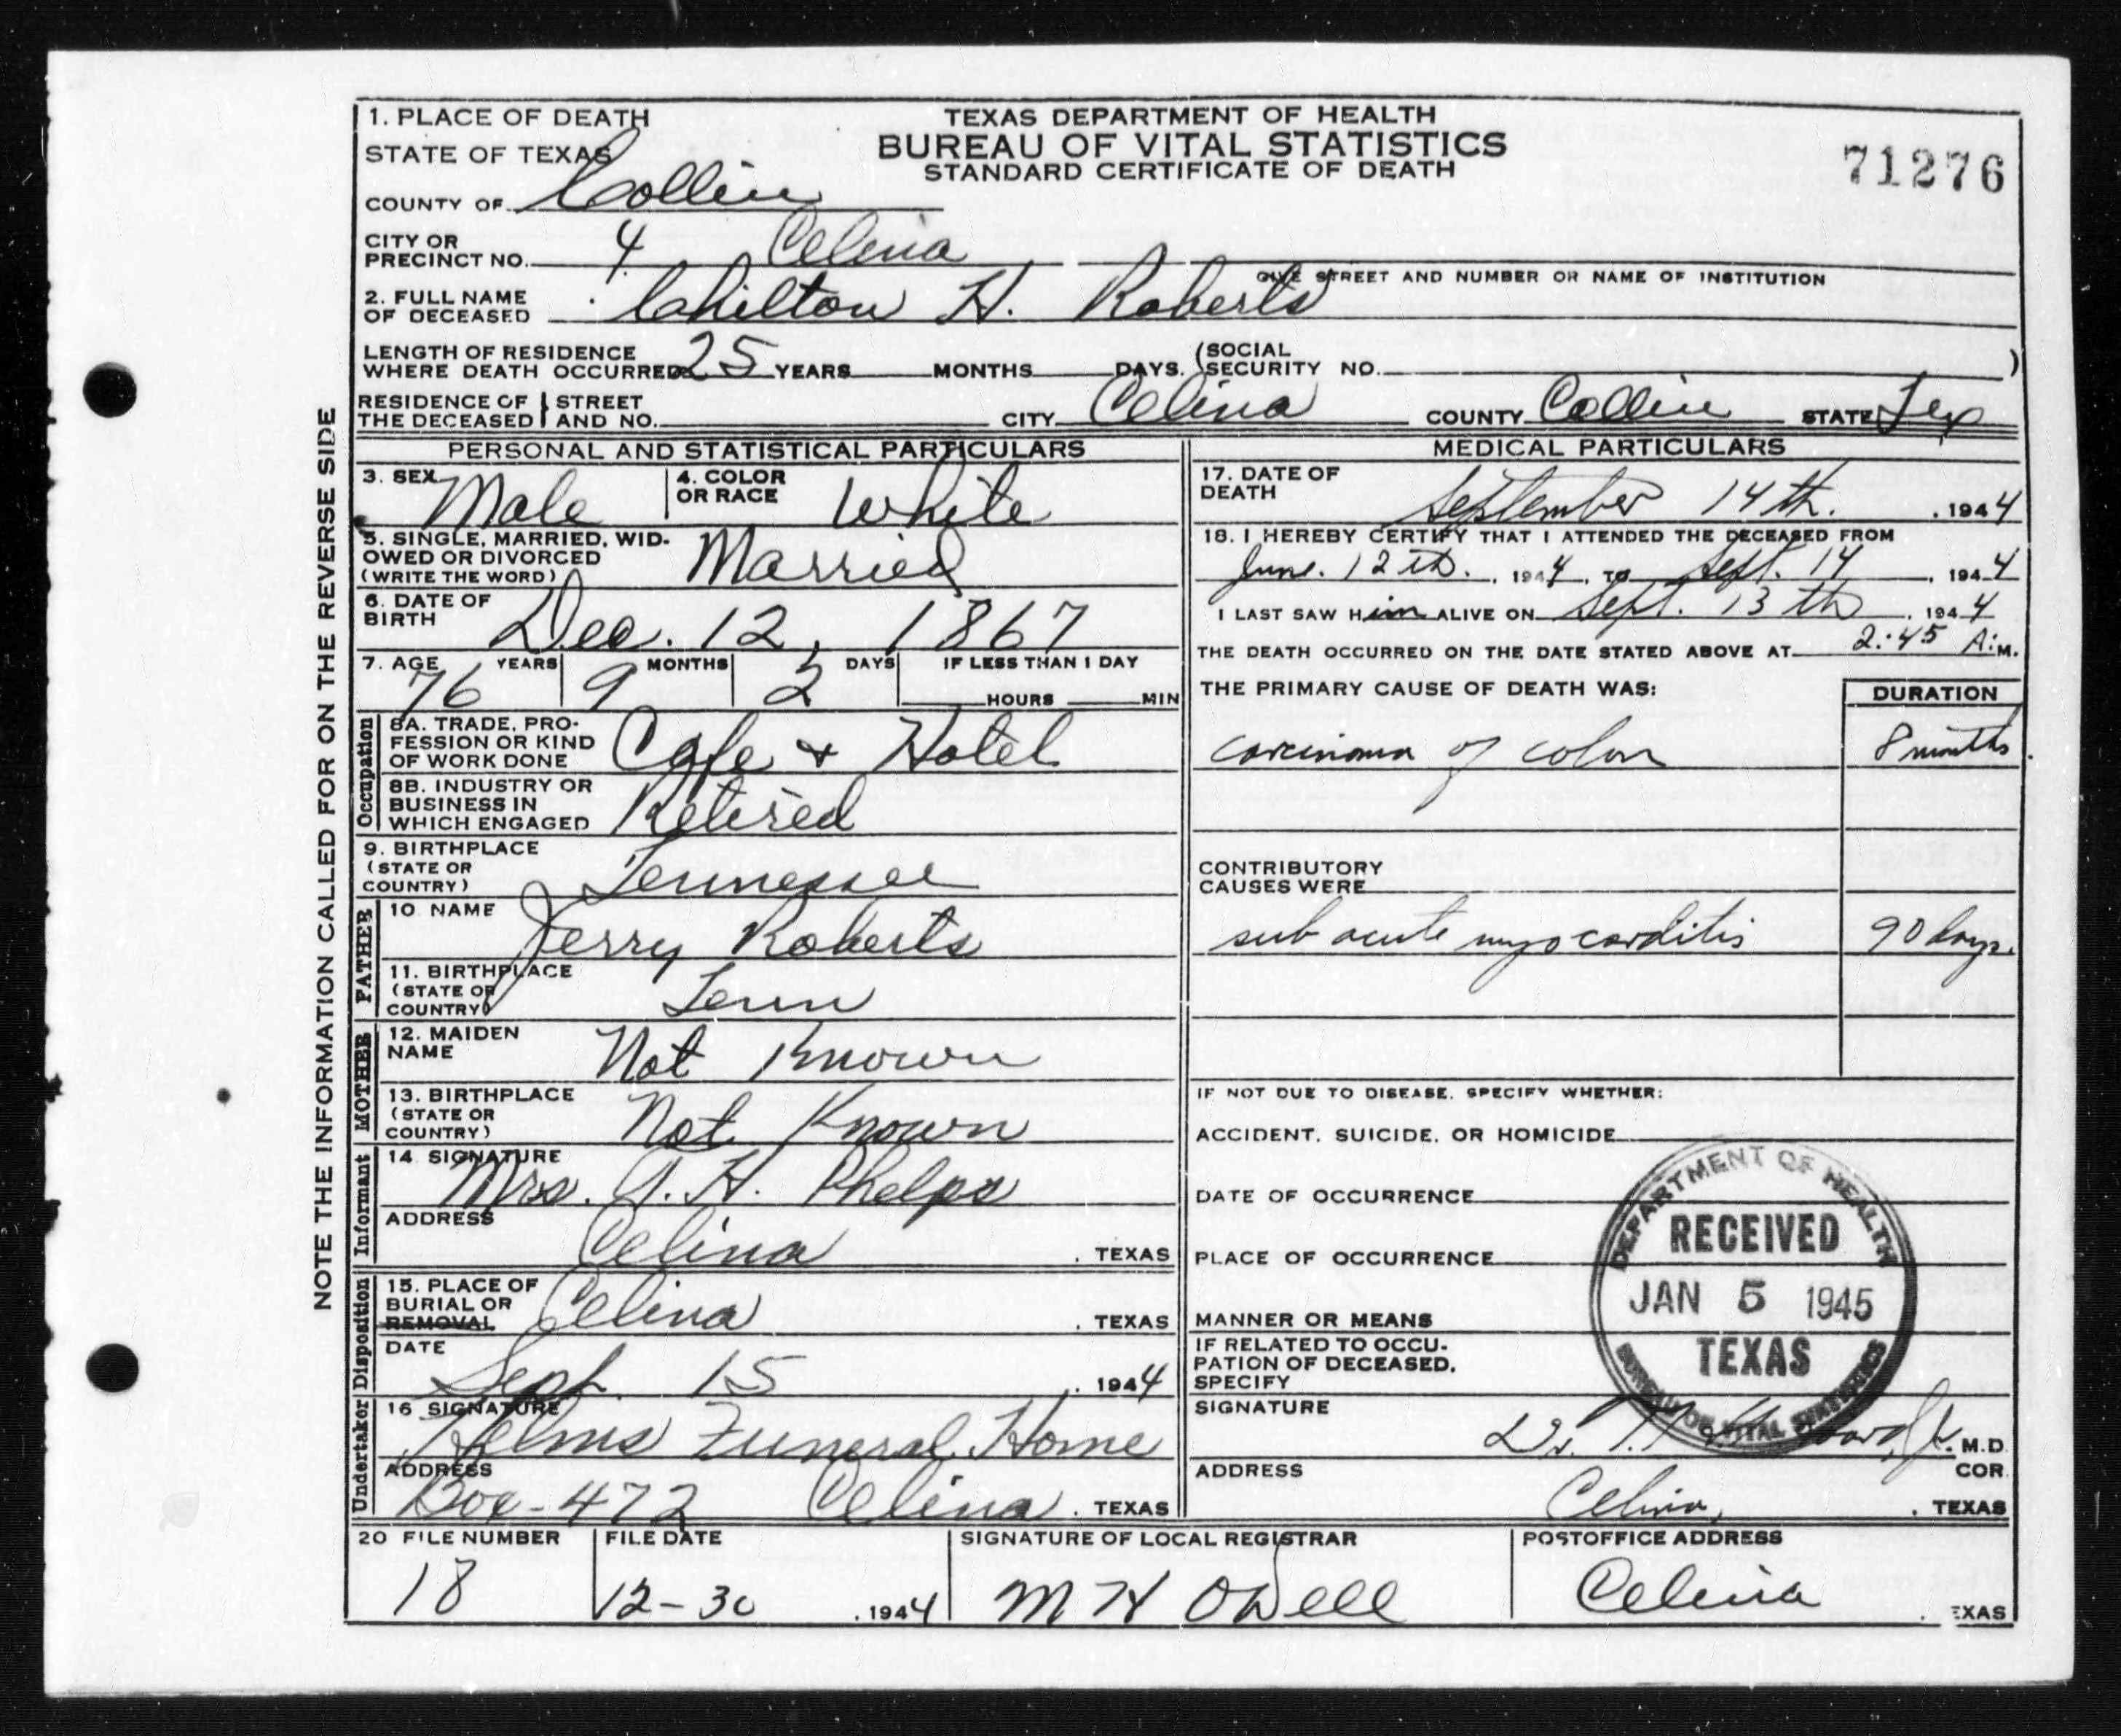 NOTE THE INFORMATION CALLED FOR ON THE REVERSE SIDE
TEXAS DEPARTMENT OF HEALTH
BUREAU OF VITAL STATISTICS
STANDARD CERTIFICATE OF DEATH
71276
1. PLACE OF DEATH
STATE OF TEXAS
COUNTY OF Collin
CITY OR PRECINCT NO. 4 Celina
GIVE STREET AND NUMBER OR NAME OF INSTITUTION
2. FULL NAME OF DECEASED Chilton H. Roberts
LENGTH OF RESIDENCE WHERE DEATH OCCURRED 25 YEARS MONTHS DAYS. (SOCIAL SECURITY NO. )
RESIDENCE OF THE DECEASED STREET AND NO. CITY Celina COUNTY Collin STATE Tex
PERSONAL AND STATISTICAL PARTICULARS
3. SEX Male 4. COLOR OR RACE White
5. SINGLE, MARRIED, WIDOWED OR DIVORCED (WRITE THE WORD) Married
6. DATE OF BIRTH Dec. 12, 1867
7. AGE 76 YEARS 9 MONTHS 2 DAYS IF LESS THAN 1 DAY HOURS MIN
Occupation
8A. TRADE, PROFESSION OR KIND OF WORK DONE Cafe + Hotel
8B. INDUSTRY OR BUSINESS IN WHICH ENGAGED Retired
9. BIRTHPLACE (STATE OR COUNTRY) Tennessee
FATHER
10 NAME Jerry Roberts
11. BIRTHPLACE (STATE OR COUNTRY) Tenn
MOTHER
12. MAIDEN NAME Not Known
13. BIRTHPLACE (STATE OR COUNTRY) Not Known
Informant
14 SIGNATURE Mrs. J. H. Phelps
ADDRESS Celina . TEXAS
Disposition
15. PLACE OF BURIAL OR REMOVAL Celina . TEXAS
DATE Sept. 15 . 1944
Undertaker
16 SIGNATURE Helms Funeral Home
ADDRESS Box-472 Celina . TEXAS
MEDICAL PARTICULARS
17. DATE OF DEATH September 14th. . 1944
18. I HEREBY CERTIFY THAT I ATTENDED THE DECEASED FROM
June. 12th. , 1944, TO Sept. 14 , 1944
I LAST SAW Him ALIVE ON Sept. 13th , 1944
THE DEATH OCCURRED ON THE DATE STATED ABOVE AT 2:45 A.M.
THE PRIMARY CAUSE OF DEATH WAS: DURATION
carcinoma of colon 8 months
CONTRIBUTORY CAUSES WERE
sub acute myocarditis 90 days.
IF NOT DUE TO DISEASE, SPECIFY WHETHER:
ACCIDENT, SUICIDE, OR HOMICIDE
DATE OF OCCURRENCE
PLACE OF OCCURRENCE
MANNER OR MEANS
IF RELATED TO OCCUPATION OF DECEASED, SPECIFY
DEPARTMENT OF HEALTH
RECEIVED
JAN 5 1945
TEXAS
BUREAU OF VITAL STATISTICS
SIGNATURE Dr. M.D.
COR.
ADDRESS Celina, . TEXAS
20 FILE NUMBER 18
FILE DATE 12-30 . 1944
SIGNATURE OF LOCAL REGISTRAR M H Odell
POSTOFFICE ADDRESS Celina . EXAS